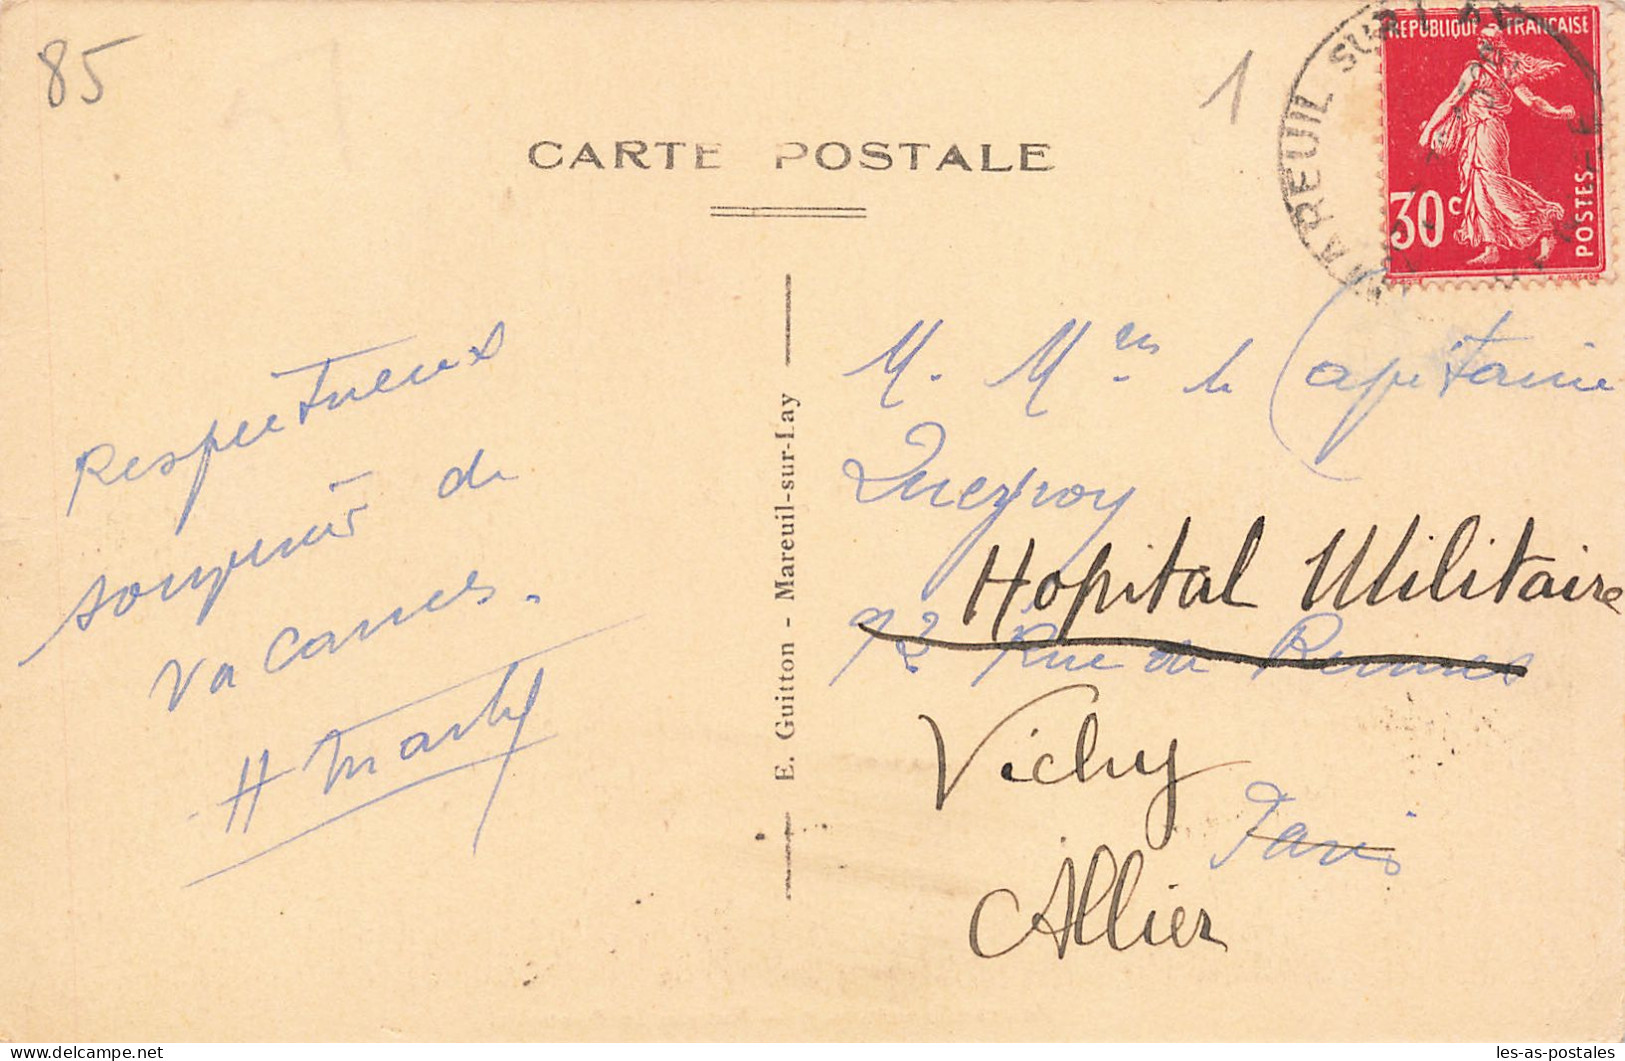 85
1
CARTE POSTALE
MAREUIL SUR LAY
REPUBLIQUE FRANCAISE
30c
POSTES
Respectueux
souvenir de
vacances.
H Marty
E. Guitton - Mareuil-sur-Lay
M. Mme le Capitaine
Queyroy
Hopital Militaire
92 Rue de Rennes
Vichy
Paris
Allier
les-as-postales